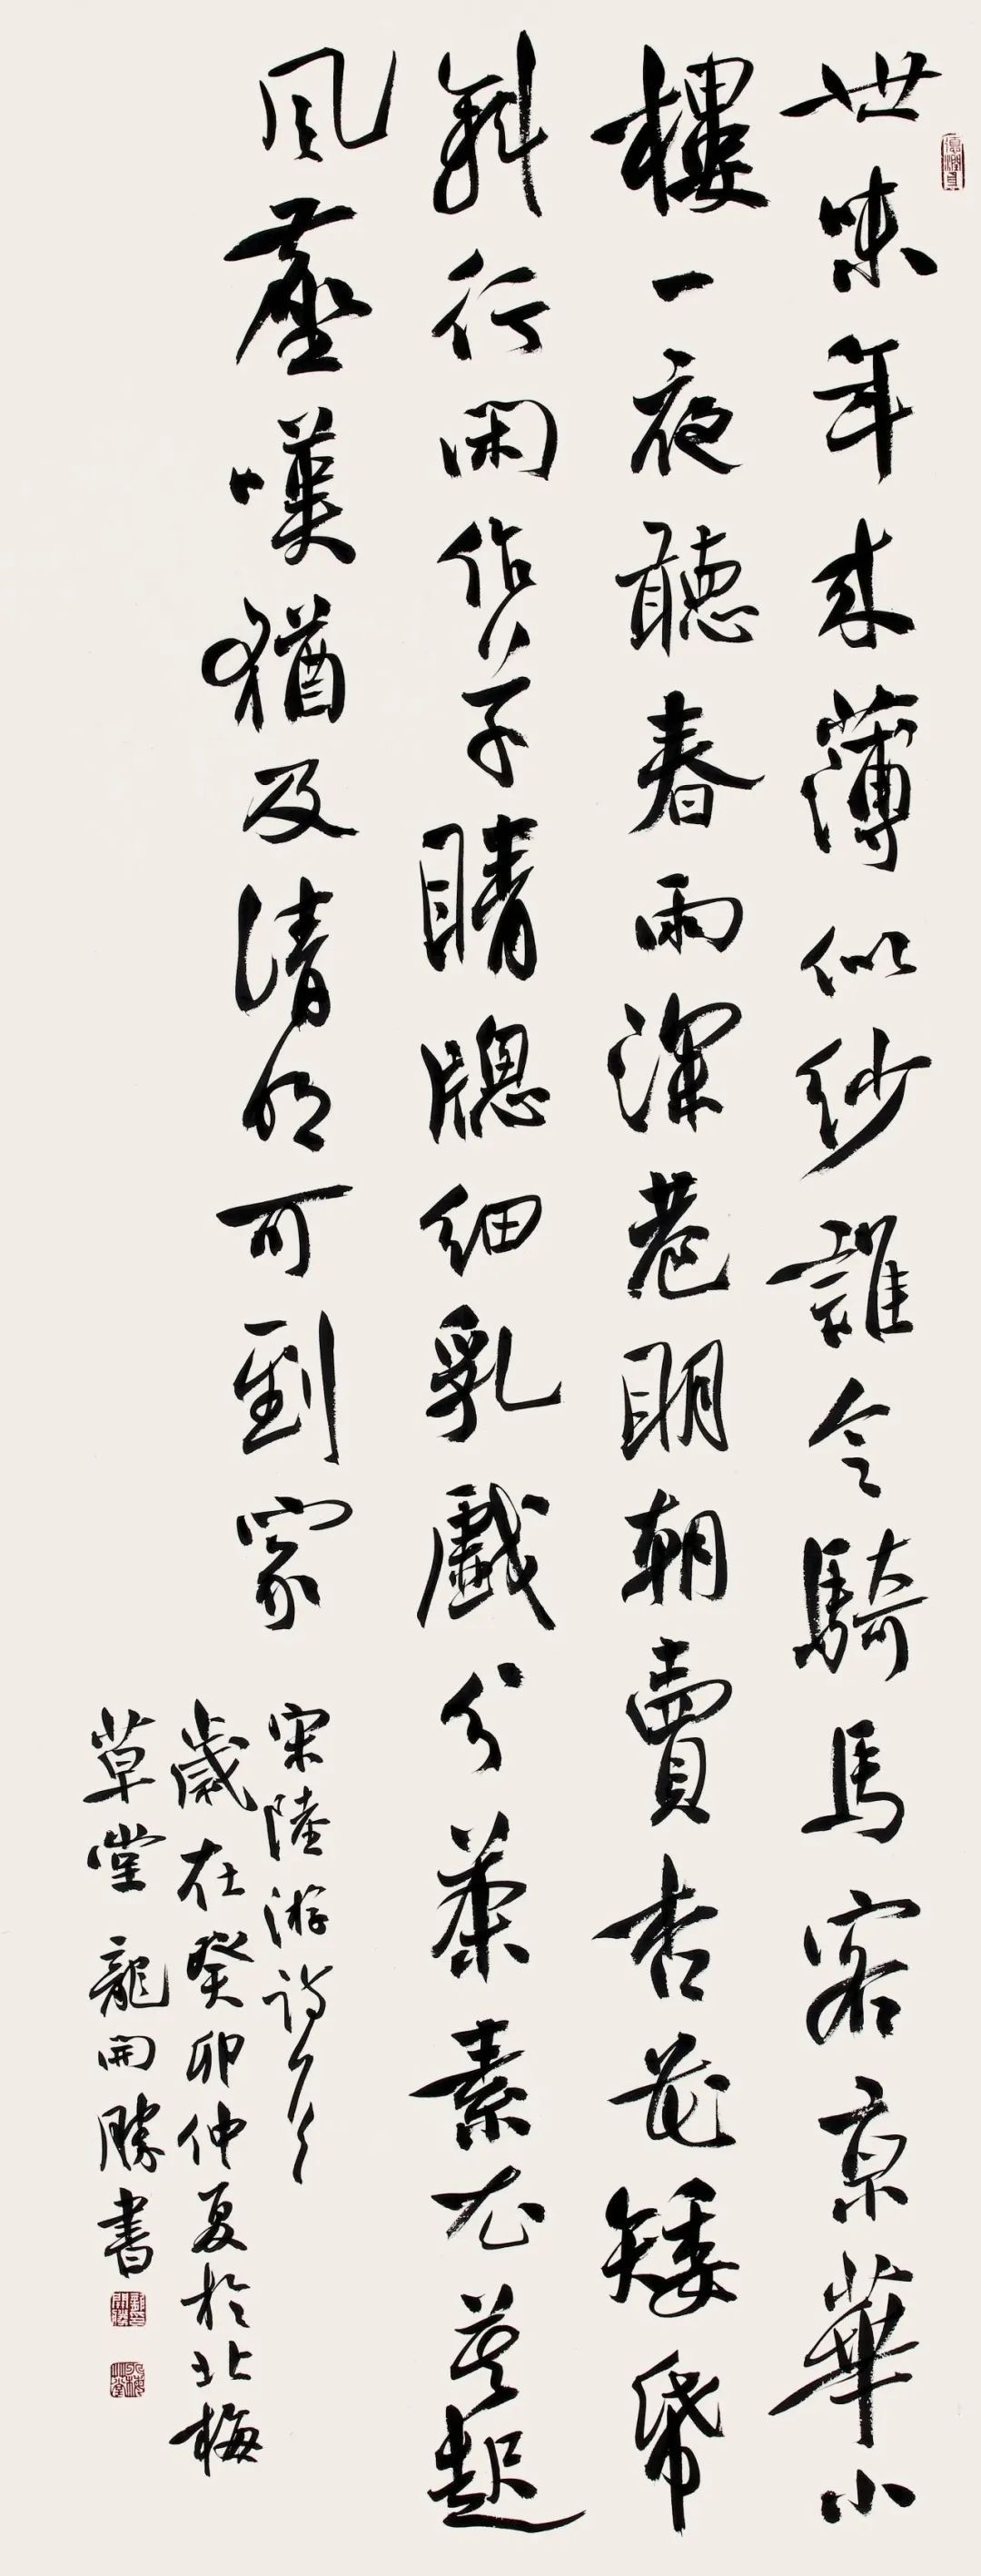 世味年来薄似纱誰令騎馬客京華小
樓一夜聽春雨深巷明朝賣杏花矮紙
斜行閑作草晴窗細乳戲分茶素衣莫起
風塵嘆猶及清明可到家
宋陸游詩一首
歲在癸卯仲夏於北梅
草堂龍開勝書